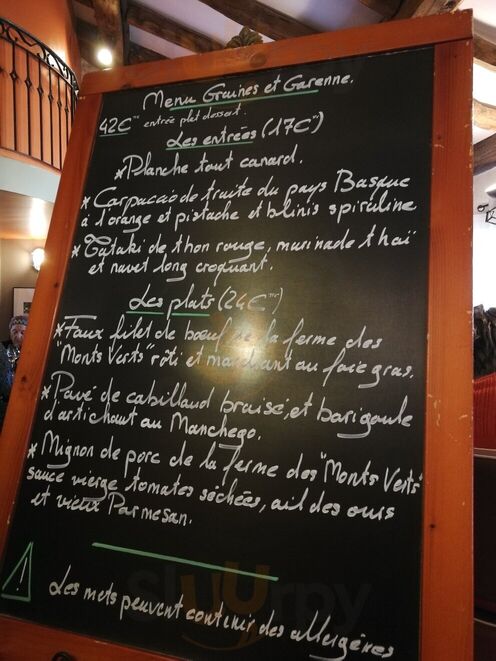 Menu Graines et Garenne.
42€ entrée plat dessert.
Les entrées (17€)
*Planche tout canard.
* Carpaccio de truite du pays Basque
à l'orange et pistache et blinis spiruline
* Tataki de thon rouge, marinade thaï
et navet long croquant.
Les plats (24€)
*Faux filet de bœuf de la ferme des
"Monts Verts" rôti et marchant au foie gras.
* Pavé de cabillaud braisé, et barigoule
d'artichaut au Manchego.
* Mignon de porc de la ferme des "Monts Verts"
sauce vierge tomates séchées, ail des ours
et vieux Parmesan.
! Les mets peuvent contenir des allergènes
Sluurpy